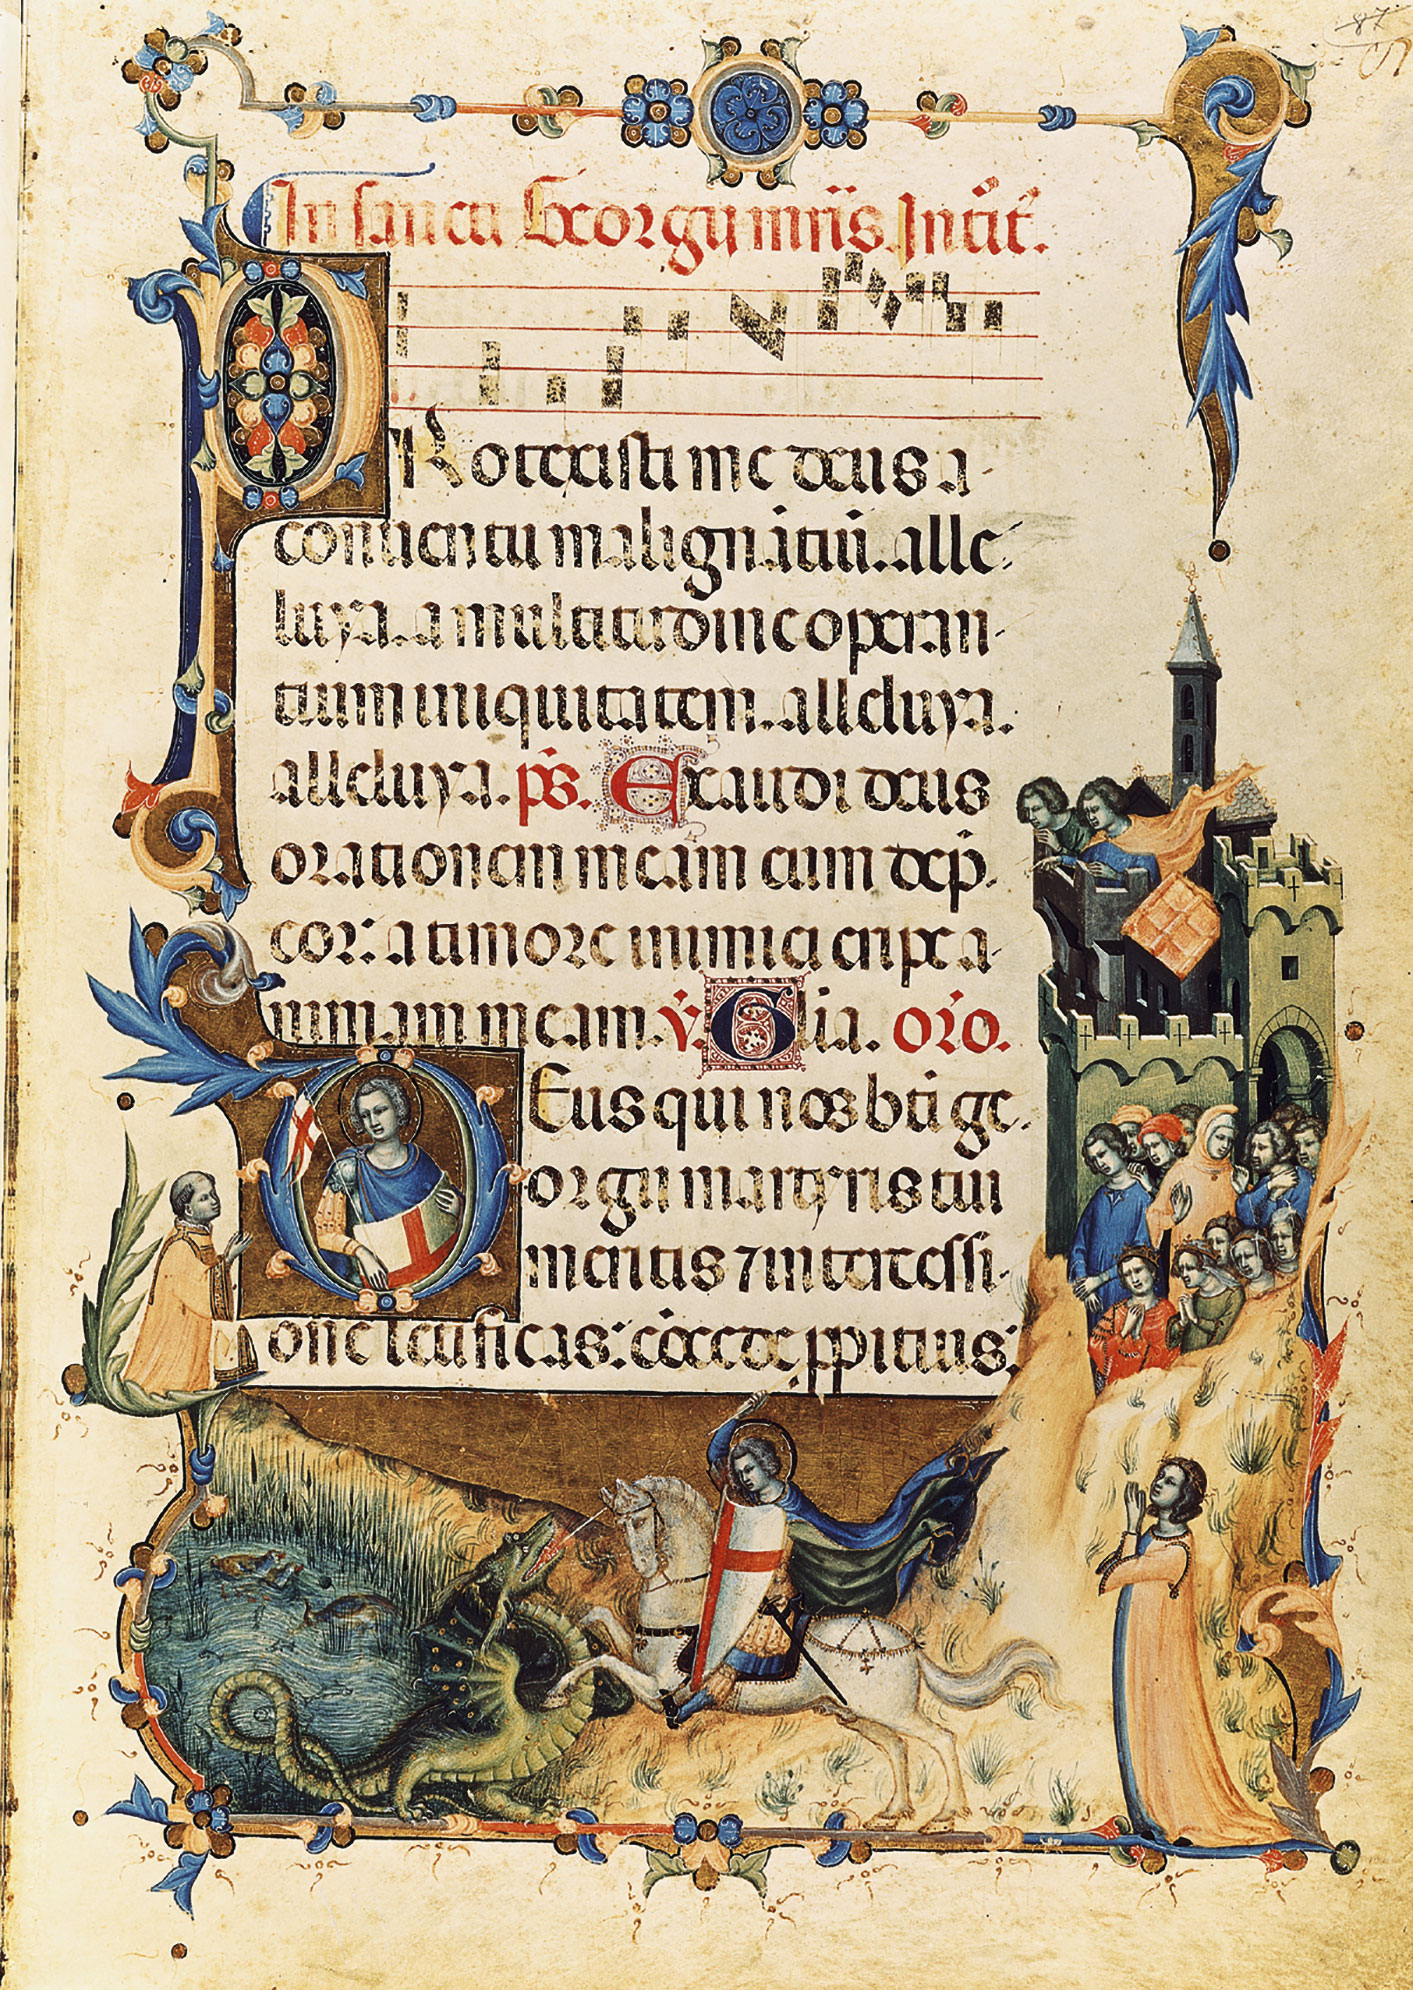 In sancti Georgij mris. Intit.
PRotexisti me deus a
conuentu malignãtiũ. alle
luya. a multitudine operan
tium iniquitatem. alleluya.
alleluya. ps. Exaudi deus
orationem meam cum dep̃
cor: a timore inimici eripe a
nimam meam. v. Glia. oro.
DEus qui nos bti ge
orgii martyris tui
meritis ⁊ intercessi
one letificas: cõcede ppitius:
87